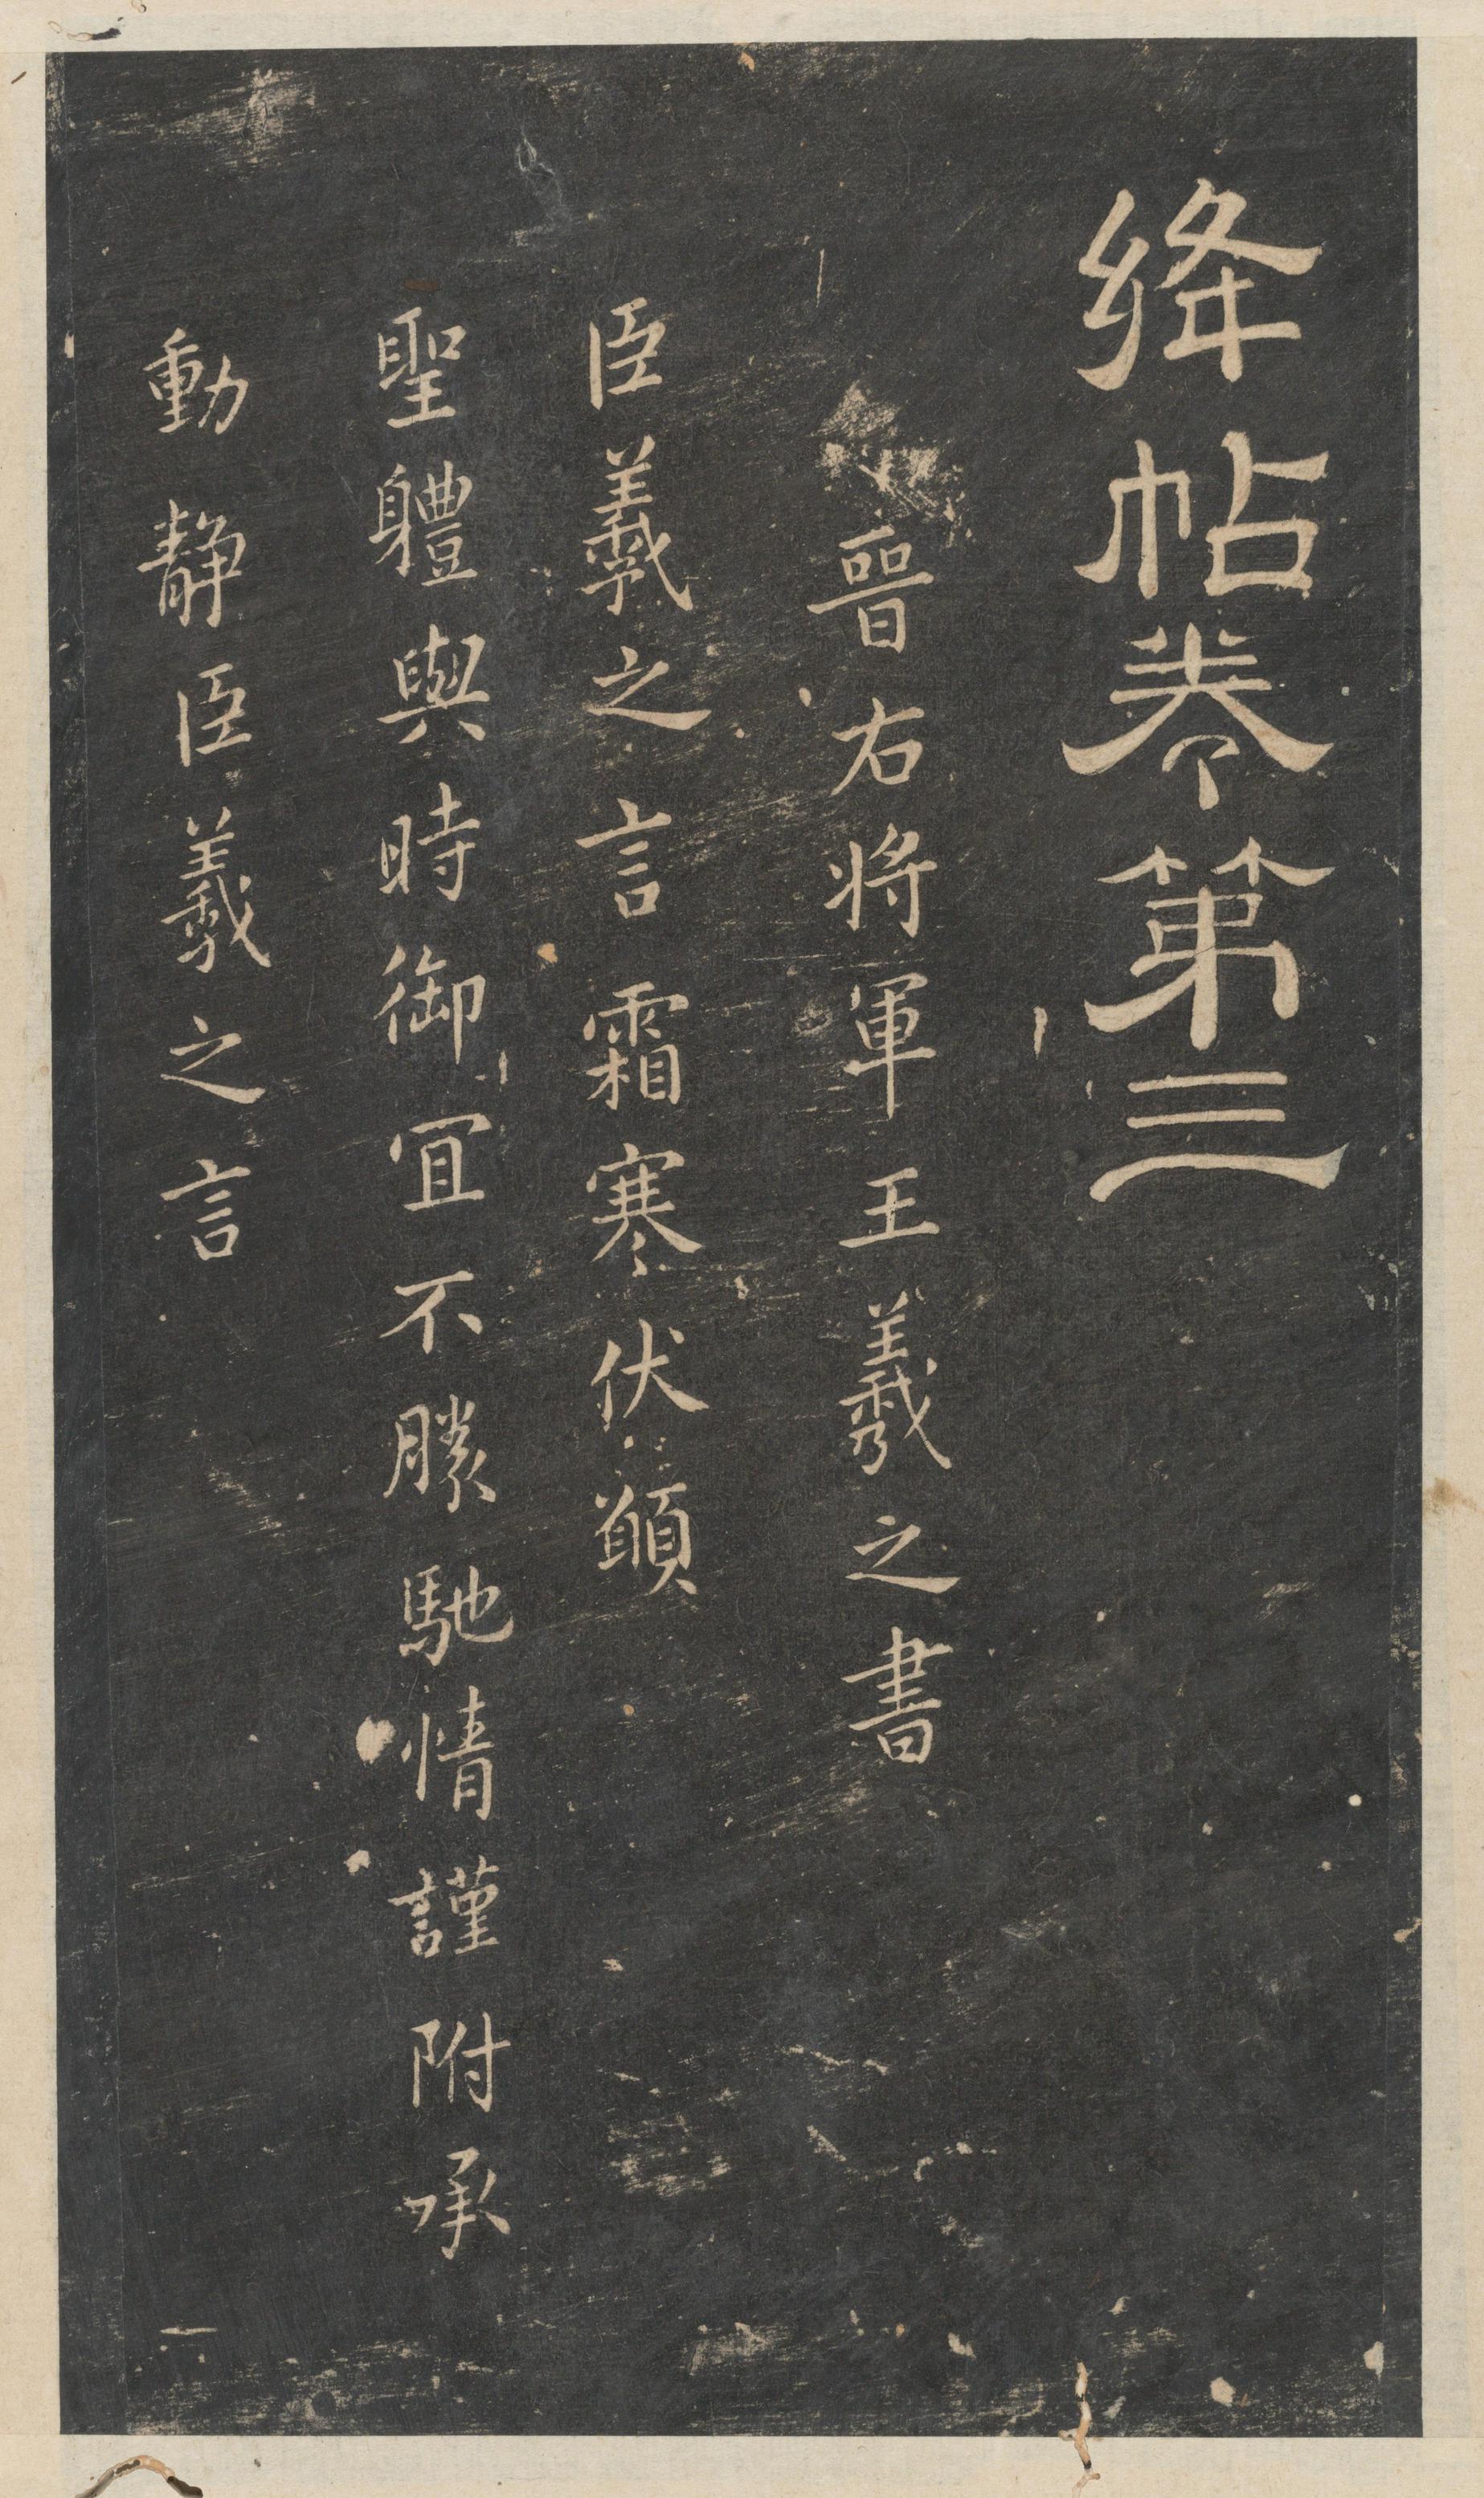 絳帖卷第三
晉右將軍王羲之書
臣羲之言霜寒伏願
聖體與時御宜不勝馳情謹附承
動靜臣羲之言